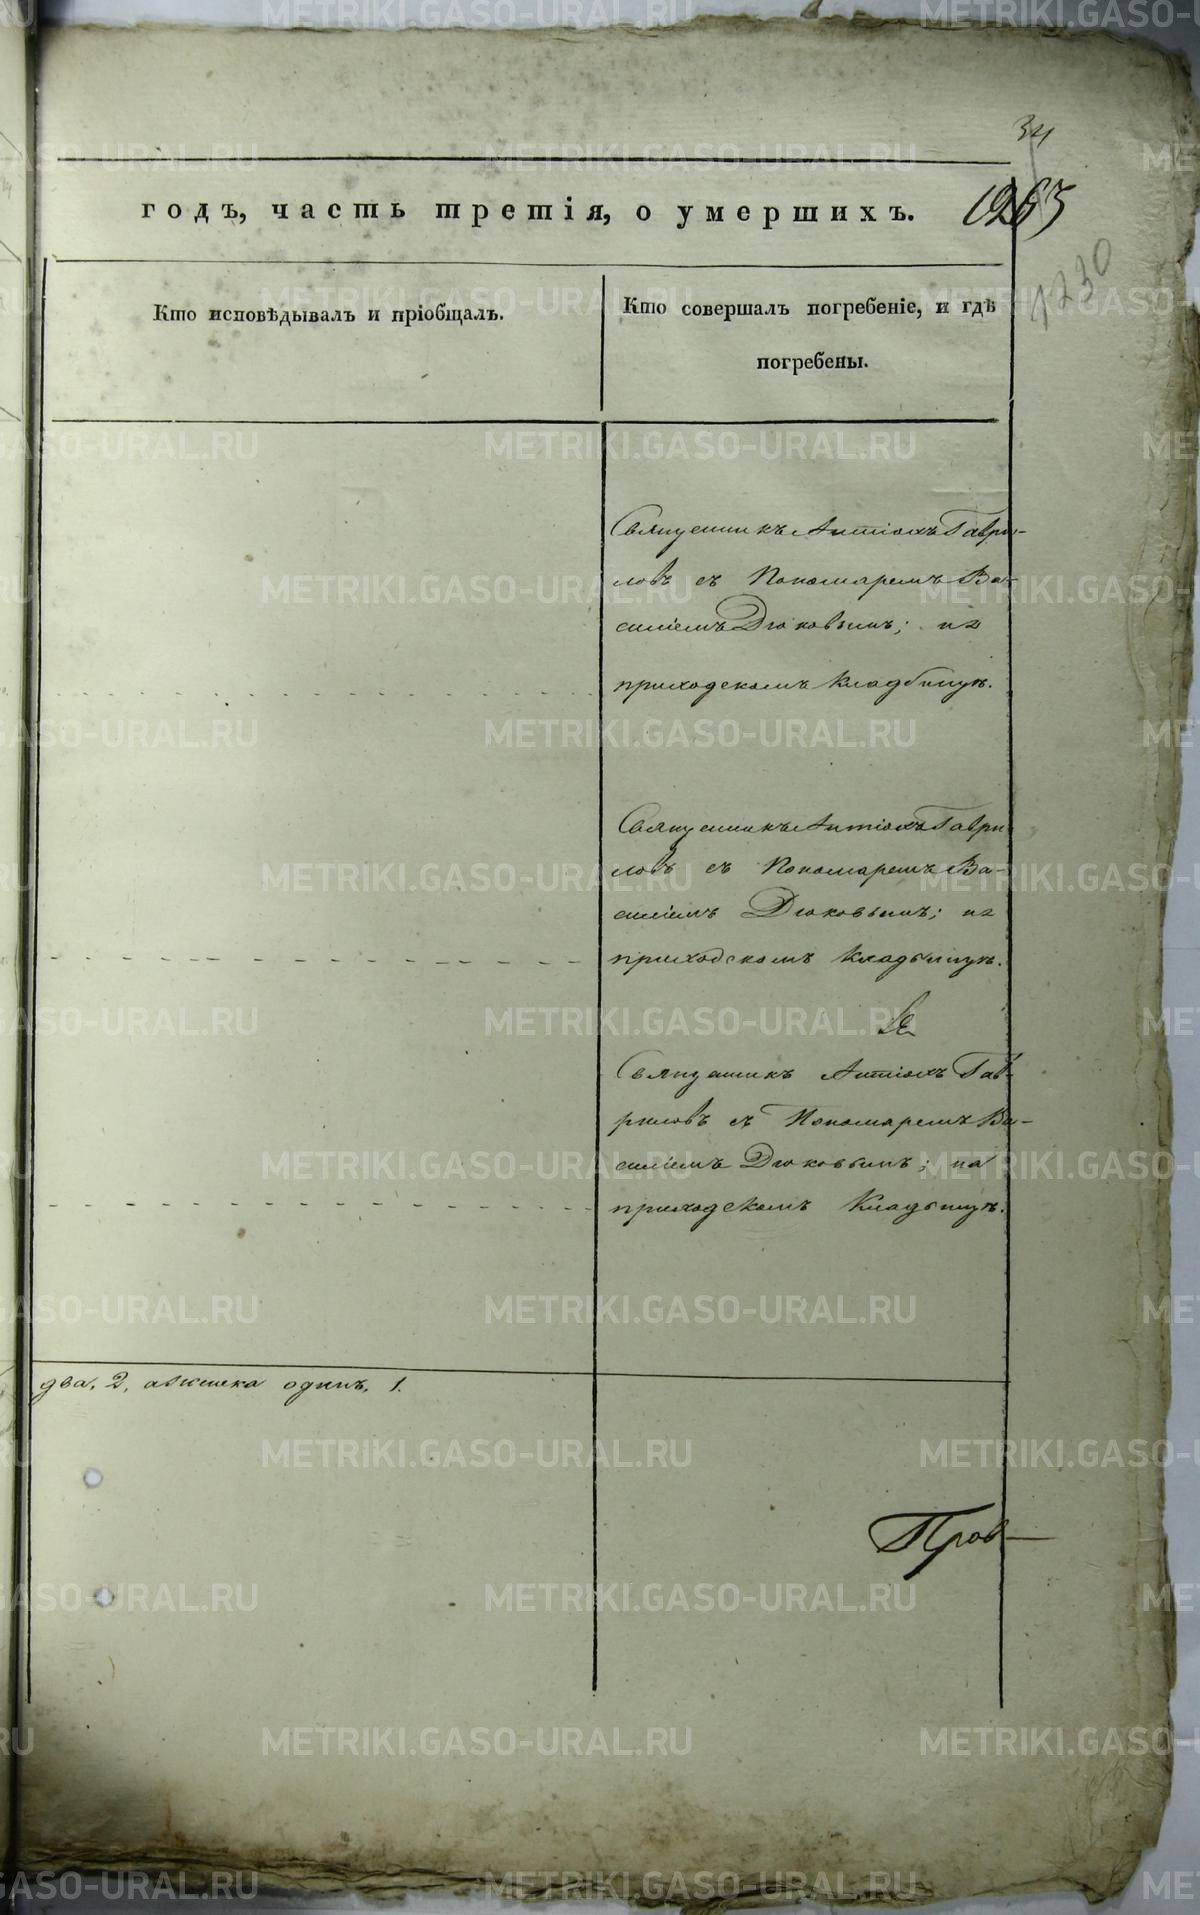 34
годъ, часть третія, о умершихъ.
1263
1230
Кто исповѣдывалъ и пріобщалъ.
Кто совершалъ погребеніе, и гдѣ
погребены.
Священникъ Антіохъ Гаври-
ловъ съ Пономаремъ Ва-
силіемъ Дюковымъ; на
приходскомъ кладбищѣ.
Священникъ Антіохъ Гаври
ловъ съ Пономаремъ Ва-
силіемъ Дюковымъ; на
приходскомъ кладбищѣ.
Священникъ Антіохъ Гав-
риловъ съ Пономаремъ Ва-
силіемъ Дюковымъ; на
приходскомъ Кладбищѣ.
два, 2, а женска одинъ, 1.
Пров-
METRIKI.GASO-URAL.RU